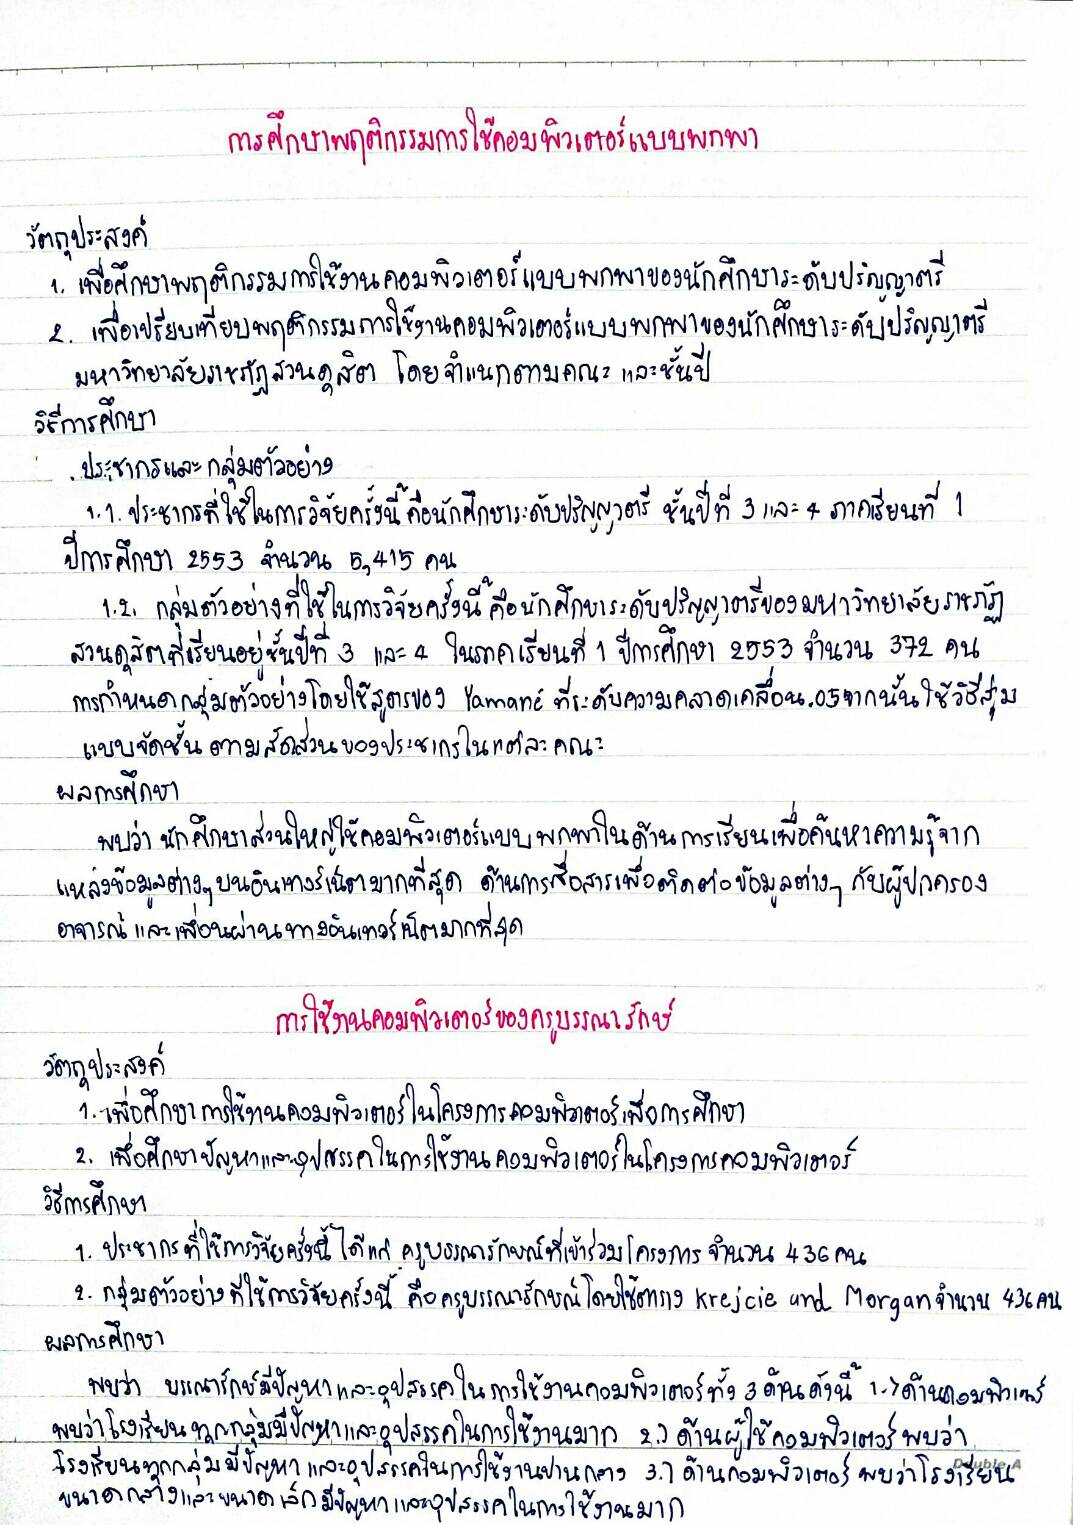 การศึกษาพฤติกรรมการใช้คอมพิวเตอร์แบบพกพา
วัตถุประสงค์
1. เพื่อศึกษาพฤติกรรมการใช้งานคอมพิวเตอร์แบบพกพาของนักศึกษาระดับปริญญาตรี
2. เพื่อเปรียบเทียบพฤติกรรมการใช้งานคอมพิวเตอร์แบบพกพาของนักศึกษาระดับปริญญาตรี
มหาวิทยาลัยราชภัฏสวนดุสิต โดยจำแนกตามคณะ และชั้นปี
วิธีการศึกษา
ประชากรและกลุ่มตัวอย่าง
1.1. ประชากรที่ใช้ในการวิจัยครั้งนี้ คือนักศึกษาระดับปริญญาตรี ชั้นปีที่ 3 และ 4 ภาคเรียนที่ 1
ปีการศึกษา 2553 จำนวน 5,415 คน
1.2. กลุ่มตัวอย่างที่ใช้ในการวิจัยครั้งนี้ คือนักศึกษาระดับปริญญาตรีของมหาวิทยาลัยราชภัฏ
สวนดุสิตที่เรียนอยู่ชั้นปีที่ 3 และ 4 ในภาคเรียนที่ 1 ปีการศึกษา 2553 จำนวน 372 คน
การกำหนดกลุ่มตัวอย่างโดยใช้สูตรของ Yamané ที่ระดับความคลาดเคลื่อน.05จากนั้นใช้วิธีสุ่ม
แบบจัดชั้น ตามสัดส่วนของประชากรในแต่ละคณะ
ผลการศึกษา
พบว่า นักศึกษาส่วนใหญ่ใช้คอมพิวเตอร์แบบพกพาในด้านการเรียนเพื่อค้นหาความรู้จาก
แหล่งข้อมูลต่างๆ บนอินเทอร์เน็ตมากที่สุด ด้านการสื่อสารเพื่อติดต่อข้อมูลต่างๆ กับผู้ปกครอง
อาจารณ์ และเพื่อนผ่านทางอินเทอร์เน็ตมากที่สุด
การใช้งานคอมพิวเตอร์ของครูบรรณารักษ์
วัตถุประสงค์
1. เพื่อศึกษาการใช้งานคอมพิวเตอร์ในโครงการคอมพิวเตอร์เพื่อการศึกษา
2. เพื่อศึกษาปัญหาและอุปสรรคในการใช้งานคอมพิวเตอร์ในโครงการคอมพิวเตอร์
วิธีการศึกษา
1. ประชากรที่ใช้การวิจัยครั้งนี้ ได้แก่ ครูบรรณารักษณ์ที่เข้าร่วมโครงการ จำนวน 436 คน
2. กลุ่มตัวอย่างที่ใช้การวิจัยครั้งนี้ คือครูบรรณารักษณ์โดยใช้ตาราง Krejcie and Morgan จำนวน 436 คน
ผลการศึกษา
พบว่า บรรณารักษ์มีปัญหาและอุปสรรคในการใช้งานคอมพิวเตอร์ทั้ง 3 ด้านดังนี้ 1.) ด้านคอมพิวเตอร์
พบว่าโรงเรียนทุกกลุ่มมีปัญหาและอุปสรรคในการใช้งานมาก 2.) ด้านผู้ใช้คอมพิวเตอร์ พบว่า
โรงเรียนทุกกลุ่มมีปัญหา และอุปสรรคในการใช้งานปานกลาง 3.) ด้านคอมพิวเตอร์ พบว่าโรงเรียน
ขนาดกลางและขนาดเล็กมีปัญหาและอุปสรรคในการใช้งานมาก
Double A